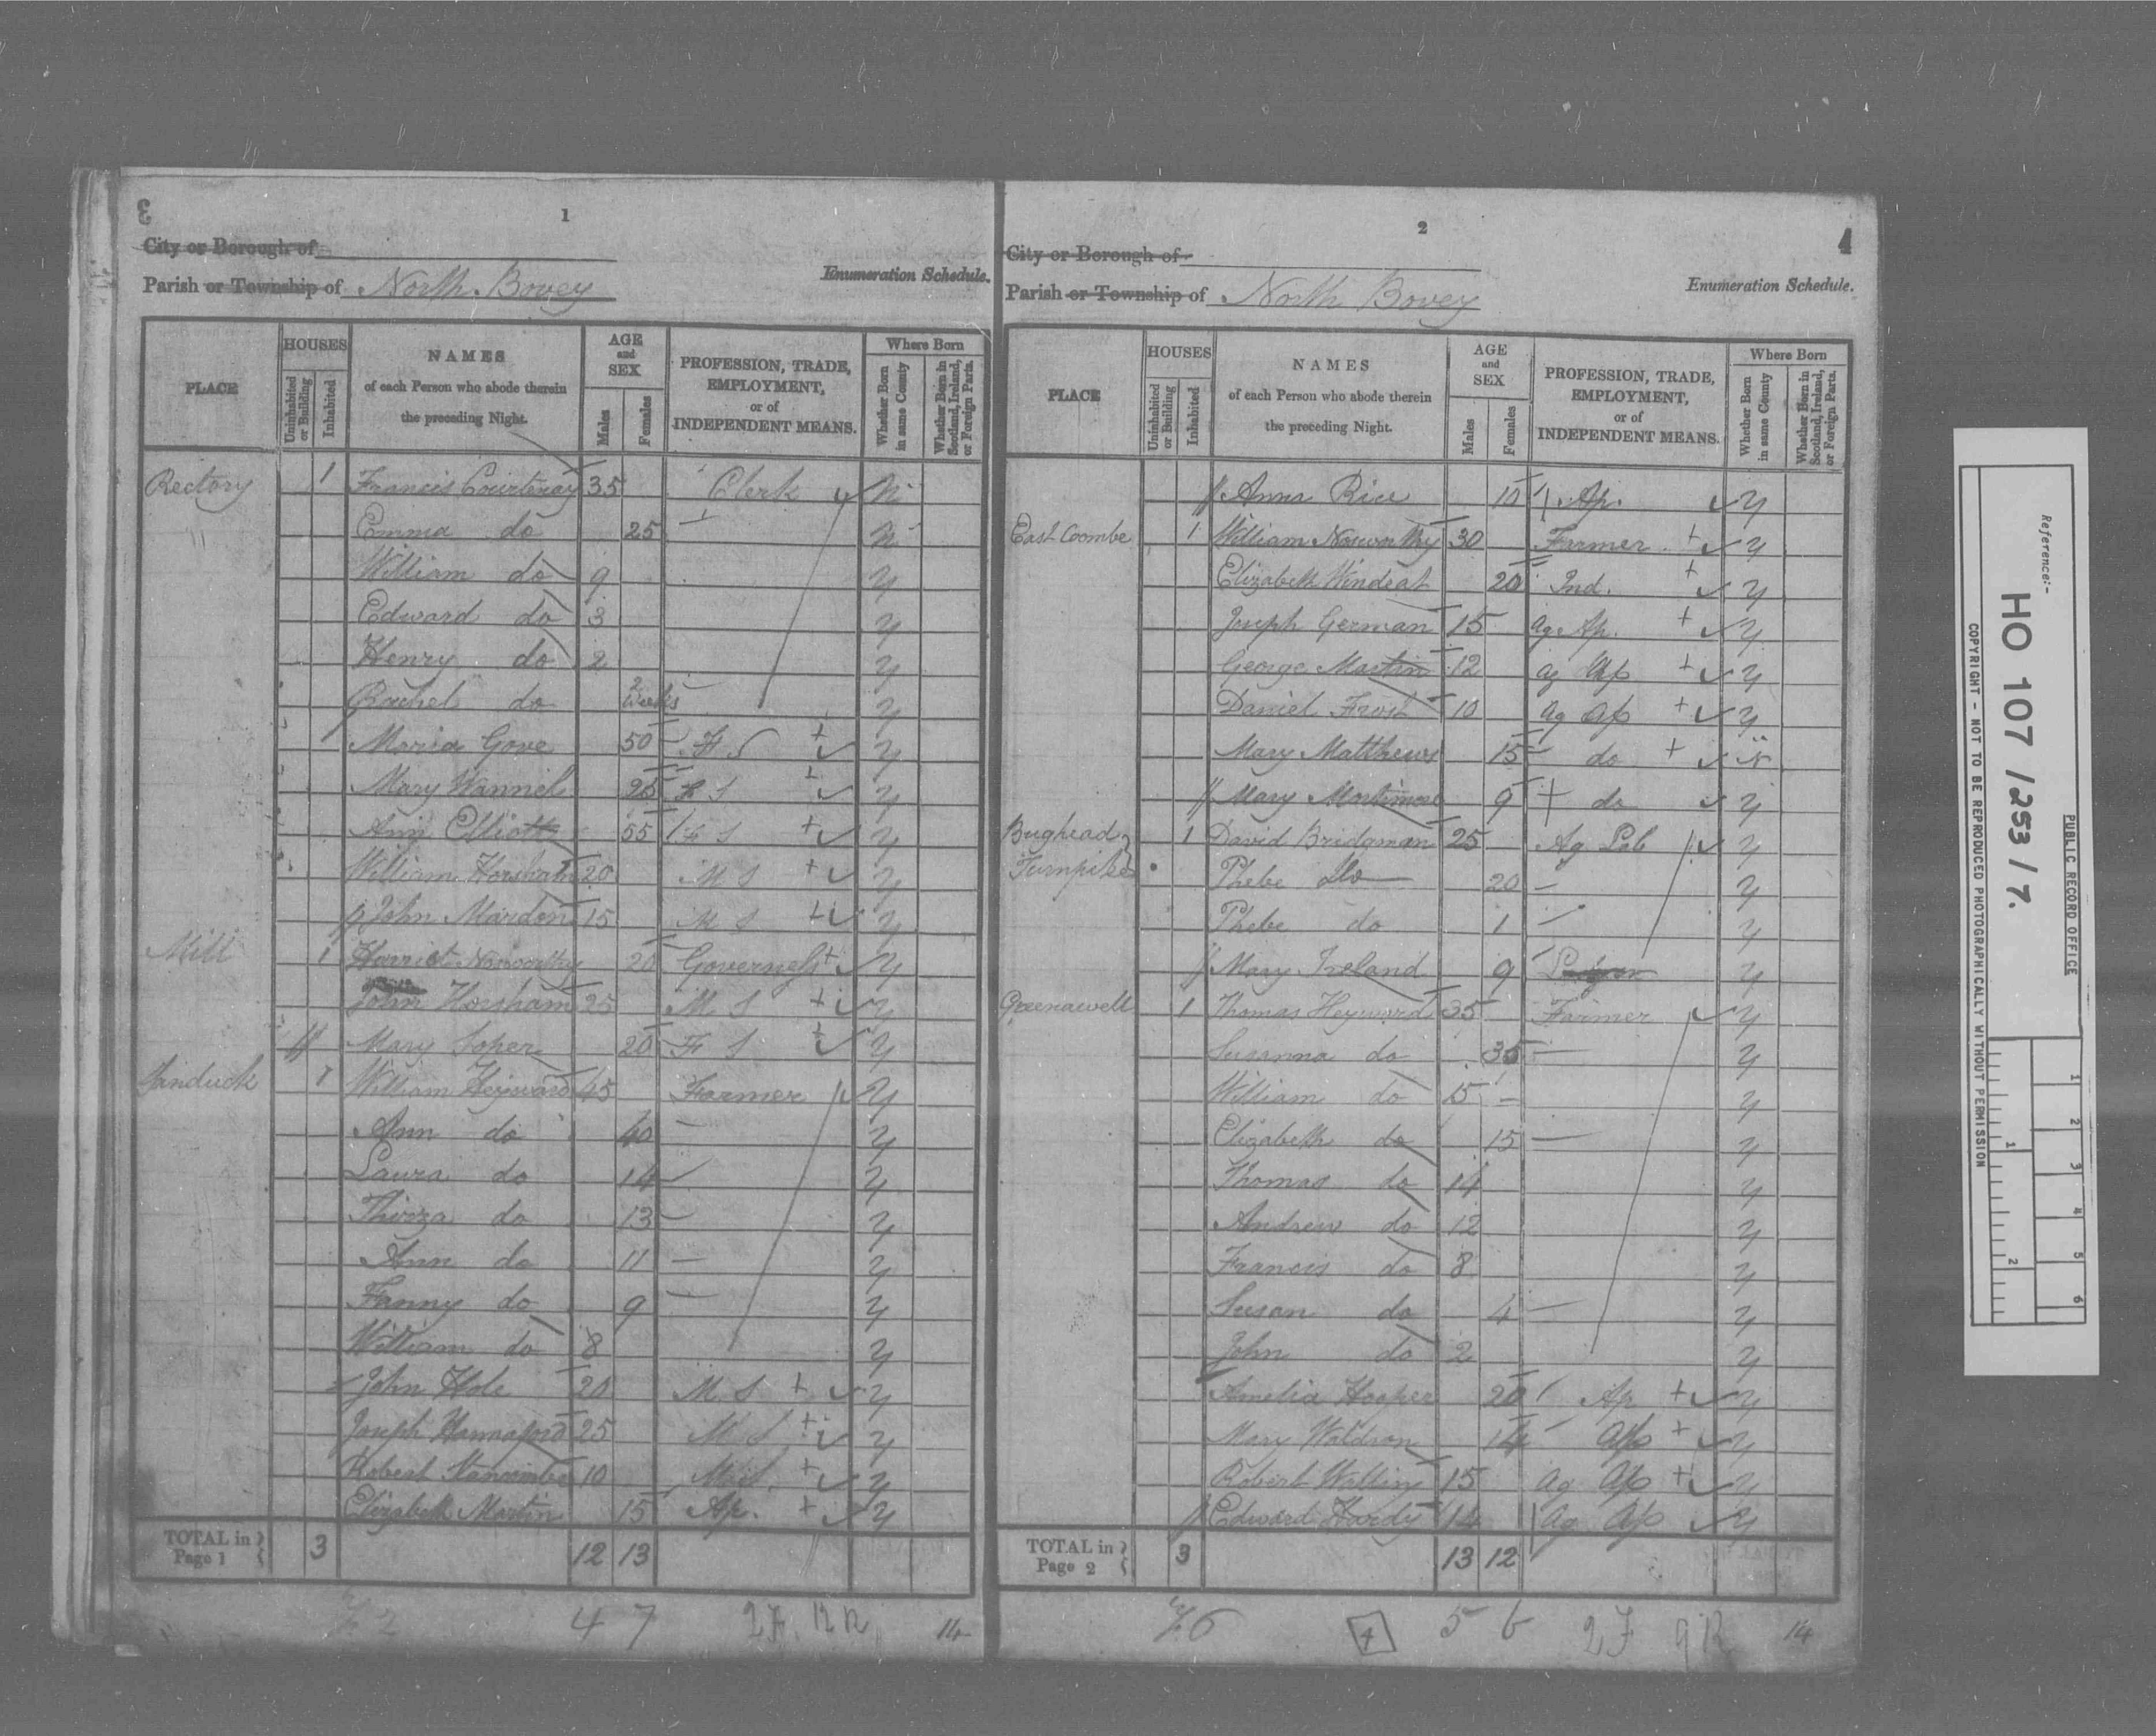 3
1
City or Borough of
Parish or Township of North Bovey
Enumeration Schedule.
PLACE
HOUSES
Uninhabited or Building
Inhabited
NAMES
of each Person who abode therein
the preceding Night.
AGE
and
SEX
Males
Females
PROFESSION, TRADE,
EMPLOYMENT,
or of
INDEPENDENT MEANS.
Where Born
Whether Born in same County
Whether Born in Scotland, Ireland, or Foreign Parts.
Rectory 1 Francis Courtenay 35 Clerk N
Emma do 25 N
William do 9 y
Edward do 3 y
Henry do 2 y
Rachel do 2 weeks y
Maria Gove 50 F S y
Mary Wannel 25 F S y
Ann Elliott 55 F S y
William Horsham 20 M S y
John Marden 15 M S y
Mill 1 Harriet Nosworthy 20 Governess y
John Horsham 25 M S y
Mary Soper 20 F S y
Sanduck 1 William Heyward 45 Farmer y
Ann do 40 y
Laura do 14 y
Thirza do 13 y
Ann do 11 y
Fanny do 9 y
William do 8 y
John Hole 20 M S y
Joseph Hannaford 25 M S y
Robert Stancombe 10 M S y
Elizabeth Martin 15 Ap. y
TOTAL in Page 1 3 12 13
4 7 2F 12R 14
2
4
City or Borough of
Parish or Township of North Bovey
Enumeration Schedule.
PLACE
HOUSES
Uninhabited or Building
Inhabited
NAMES
of each Person who abode therein
the preceding Night.
AGE
and
SEX
Males
Females
PROFESSION, TRADE,
EMPLOYMENT,
or of
INDEPENDENT MEANS.
Where Born
Whether Born in same County
Whether Born in Scotland, Ireland, or Foreign Parts.
Anna Rice 15 Ap. y
East Coombe 1 William Nosworthy 30 Farmer y
Elizabeth Windeat 20 Ind. y
Joseph German 15 Ag. Ap. y
George Martin 12 Ag Ap y
Daniel Frost 10 Ag Ap y
Mary Matthews 15 do N
Mary Mortimore 9 do y
Bughead 1 David Bridgman 25 Ag Lab y
Turnpike Phebe Do 20 y
Phebe do 1 y
Mary Ireland 9 y
Greenawell 1 Thomas Heyward 35 Farmer y
Susanna do 35 y
William do 15 y
Elizabeth do 15 y
Thomas do 14 y
Andrew do 12 y
Francis do 8 y
Susan do 4 y
John do 2 y
Amelia Hooper 20 Ap y
Mary Waldron 14 Ap y
Robert Walling 15 Ag Ap y
Edward Hardy 14 Ag Ap y
TOTAL in Page 2 3 13 12
4 5 6 2F 9R 14
Reference:-
HO 107/253/7.
PUBLIC RECORD OFFICE
COPYRIGHT - NOT TO BE REPRODUCED PHOTOGRAPHICALLY WITHOUT PERMISSION
1 2 3 4 5 6
1 2